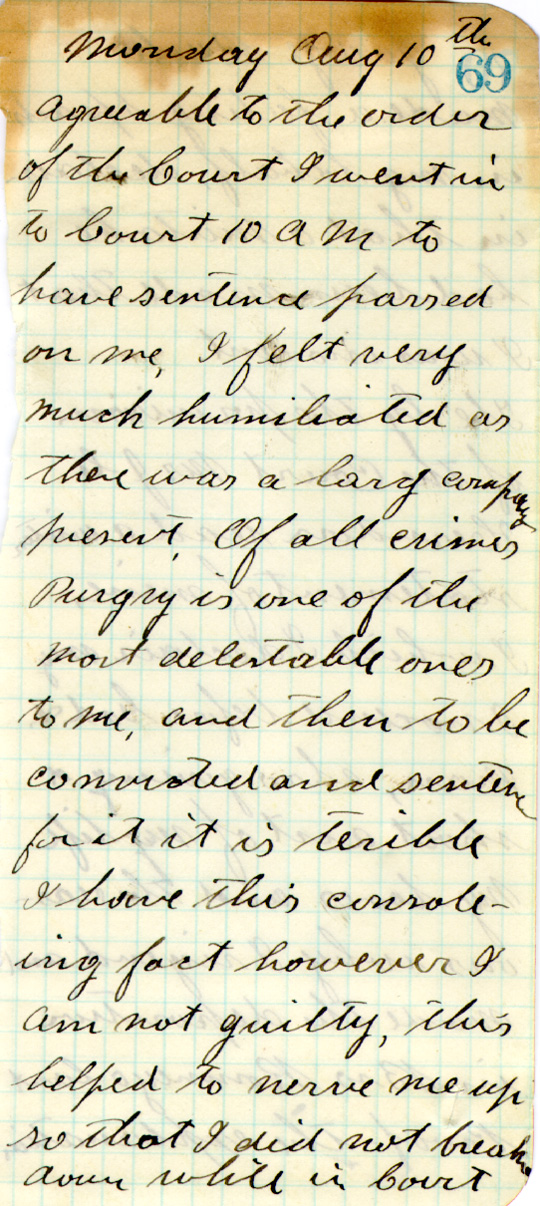 Monday Aug 10th
69
Agreeable to the order
of the Court I went in
to Court 10 A M to
have sentence passed
on me, I felt very
much humiliated as
there was a larg compay
present, Of all crimes
Purgry is one of the
most delestable ones
to me, and then to be
convicted and sentenc
for it it is terible
I have this console-
ing fact however I
am not guilty, this
helped to nerve me up
so that I did not break
down while in Court